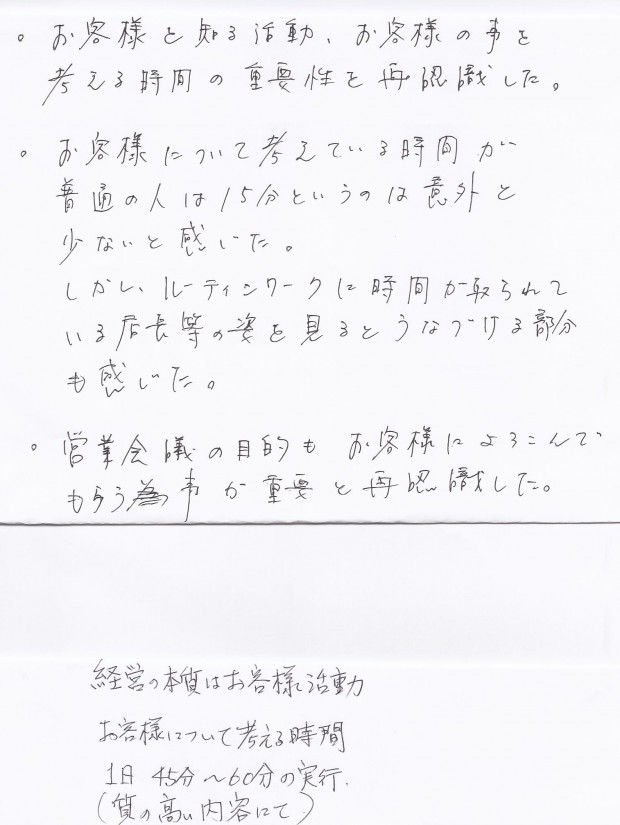 。お客様と知る活動、お客様の事を
考える時間の重要性を再認識した。
。お客様について考えている時間が
普通の人は15分というのは意外と
少ないと感じた。
しかし、ルーティンワークに時間が取られて
いる店長等の姿を見るとうなづける部分
も感じた。
。営業会議の目的も お客様によろこんで
もらう事が重要と再認識した。
経営の本質はお客様活動
お客様について考える時間
1日 45分～60分の実行.
(質の高い内容にて)